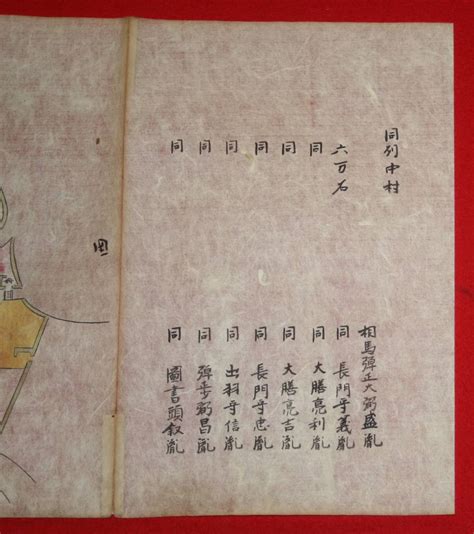 同列中村
相馬弾正大弼盛胤
六万石 同 長門守義胤
同 同 大膳亮利胤
同 同 大膳亮吉胤
同 同 長門守忠胤
同 同 出羽守信胤
同 同 弾正弼昌胤
同 同 圖書頭叙胤